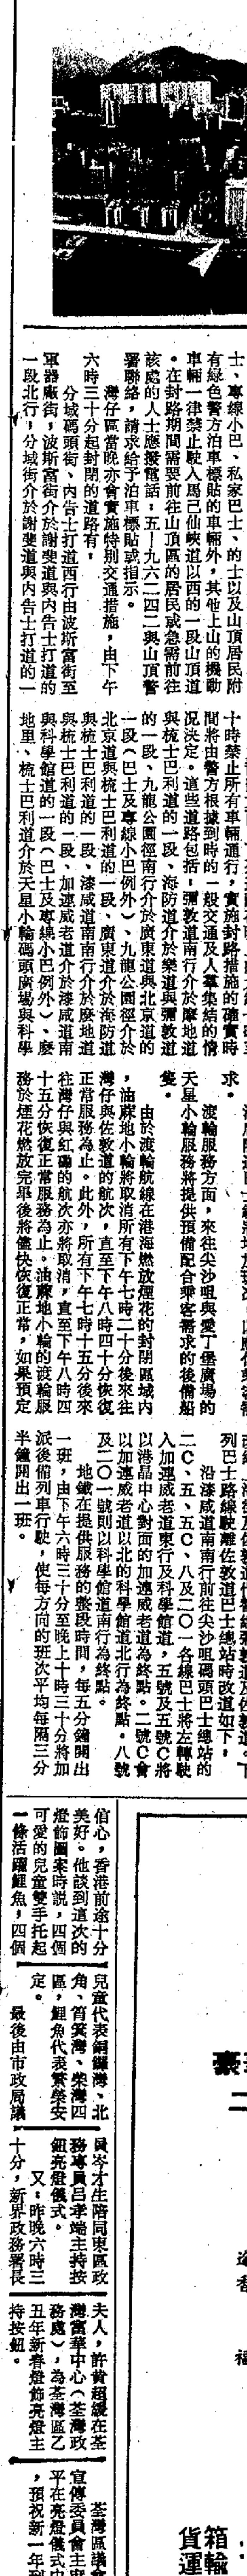 士、專線小巴、私家巴士、的士以及山頂居民附
有綠色警方泊車標貼的車輛外，其他上山的機動
車輛一律禁止駛入馬己仙峽道以西的一段山頂道
。在封路期間需要前往山頂區的居民或急需前往
該處的人士應撥電話：五—九六二二四二與山頂警
署聯絡，請求給予泊車標貼或指示。
灣仔區當晚亦會實施特別交通措施，由下午
六時三十分起封閉的道路有：
分域碼頭街、內告士打道西行由波斯富街至
軍器廠街，波斯富街介於謝斐道與內告士打道的
一段北行，分域街介於謝斐道與內告士打道的一
十時禁止所有車輛通行，實施封路措施的確實時
間將由警方根據到時的一般交通及人羣集結的情
況決定。這些道路包括：彌敦道南行介於摩地道
與梳士巴利道的一段、海防道介於樂道與彌敦道
的一段、九龍公園徑南行介於廣東道與北京道的
一段（巴士及專線小巴例外）、九龍公園徑介於
北京道與梳士巴利道的一段、廣東道介於海防道
與梳士巴利道的一段、漆咸道南南行介於麼地道
與梳士巴利道的一段、加連威老道介於漆咸道南
與科學館道的一段（巴士及專線小巴例外）、麼
地里、梳士巴利道介於天星小輪碼頭廣場與科學
求。
渡輪服務方面，來往尖沙咀與愛丁堡廣場的
天星小輪服務將提供預備配合乘客需求的後備船
隻。
由於渡輪航線在港海燃放煙花的封閉區域內
，油蔴地小輪將取消所有下午七時二十分後來往
灣仔與佐敦道的航次，直至下午八時四十分恢復
正常服務為止。此外，所有下午七時十五分後來
往灣仔與紅磡的航次亦將取消，直至下午八時四
十五分恢復正常服務為止。油蔴地小輪的渡輪服
務於煙花燃放完畢後將儘快恢復正常，如果預定
列巴士路線駛離佐敦道巴士總站時改道如下：
沿漆咸道南南行前往尖沙咀碼頭巴士總站的
二Ｃ、五、五Ｃ、八及二〇一各線巴士將左轉駛
入加連威老道東行及科學館道，五號及五號Ｃ將
以港晶中心對面的加連威老道為終點。二號Ｃ會
以加連威老道以北的科學館道北行為終點。八號
及二〇一號則以科學館道南行為終點。
地鐵在提供服務的整段時間，每五分鐘開出
一班，由下午六時三十分至晚上十時三十分將加
派後備列車行駛，使每方向的班次平均每隔三分
半鐘開出一班。
信心，香港前途十分
美好。他談到這次的
燈飾圖案時說，四個
可愛的兒童雙手托起
一條活躍鯉魚，四個
兒童代表銅鑼灣、北
角、筲箕灣、柴灣四
區，鯉魚代表繁榮安
定。
最後由市政局議
員岑才生陪同東區政
務專員呂孝端主持按
鈕亮燈儀式。
又：昨晚六時三
十分，新界政務署長
夫人，許黃超媛在荃
灣富華中心（荃灣政
務處），為荃灣區乙
丑年新春燈飾亮燈主
持按鈕。
荃灣區議會
宣傳委員會主席
平在亮燈儀式中
，預祝新一年
豪
二
福
箱輸
貨運